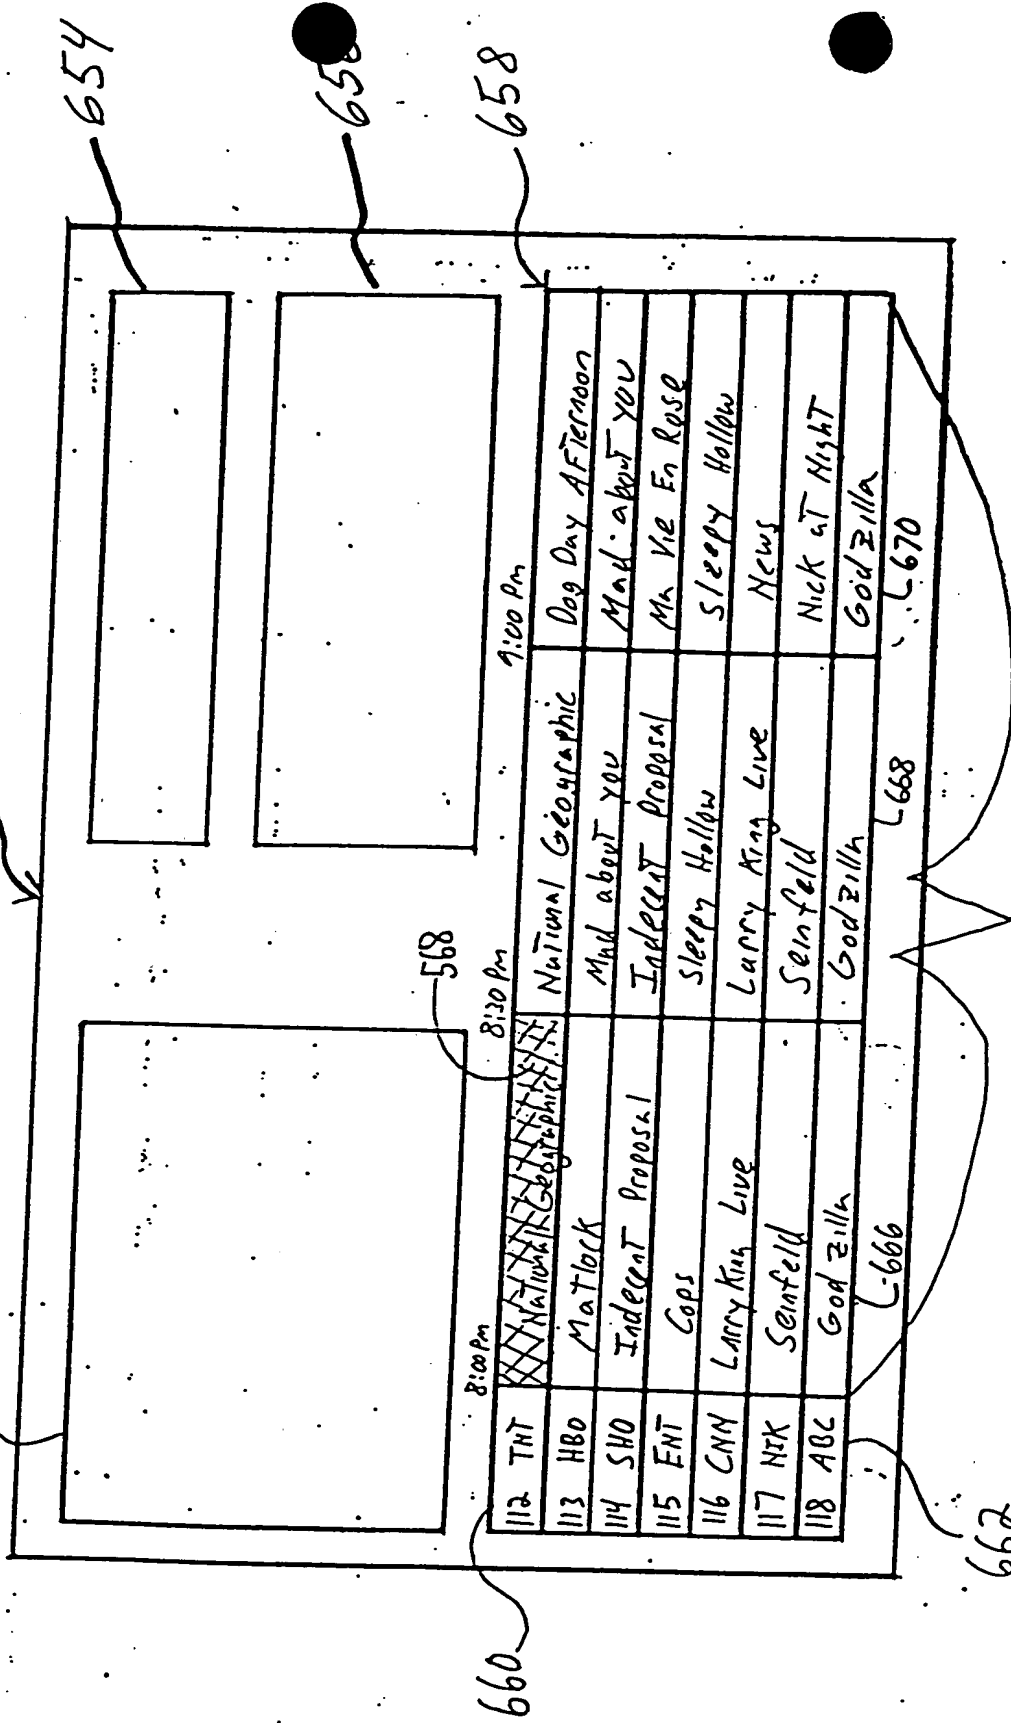 654
658
568
8:00 Pm 8:30 Pm 9:00 Pm
660
112 TNT National Geographic National Geographic Dog Day Afternoon
113 HBO Matlock Mad about you Mad about you
114 SHO Indecent Proposal Indecent Proposal Ma Vie En Rose
115 ENT Cops Sleepy Hollow Sleepy Hollow
116 CNN Larry King Live Larry King Live News
117 NIK Seinfeld Seinfeld Nick at Night
118 ABC Godzilla Godzilla Godzilla
662 666 668 670